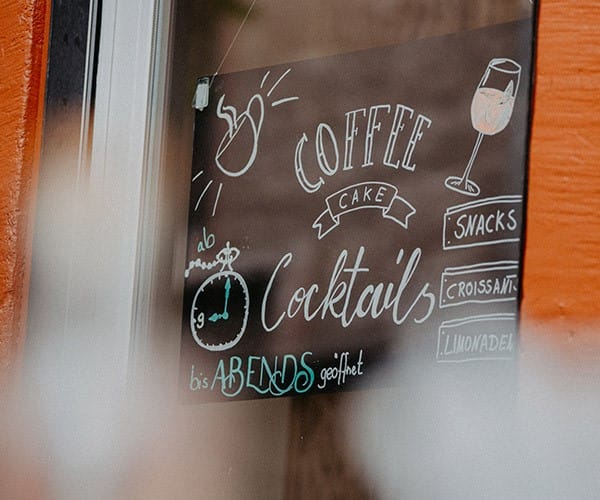 COFFEE
CAKE
Cocktails
SNACKS
CROISSANT
LIMONADEN
ab
9
bis ABENDS geöffnet